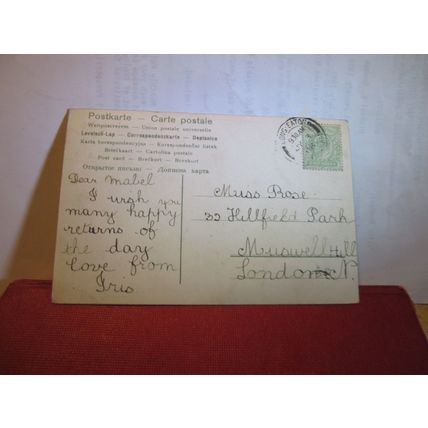 Postkarte - Carte postale
Weltpostverein - Union postale universelle
Levelező-Lap - Correspondenzkarte - Dopisnice
Karta korespondencyjna - Korespondenční lístek
Brefkaart - Cartolina postale
Post card - Brefkort - Brevkort
Открытое письмо - Дописна карта
Dear Mabel
I wish you
many happy
returns of
the day
love from
Iris
Miss Rose.
32 Hillfield Park
Muswell Hill
London N.
LONG EATON